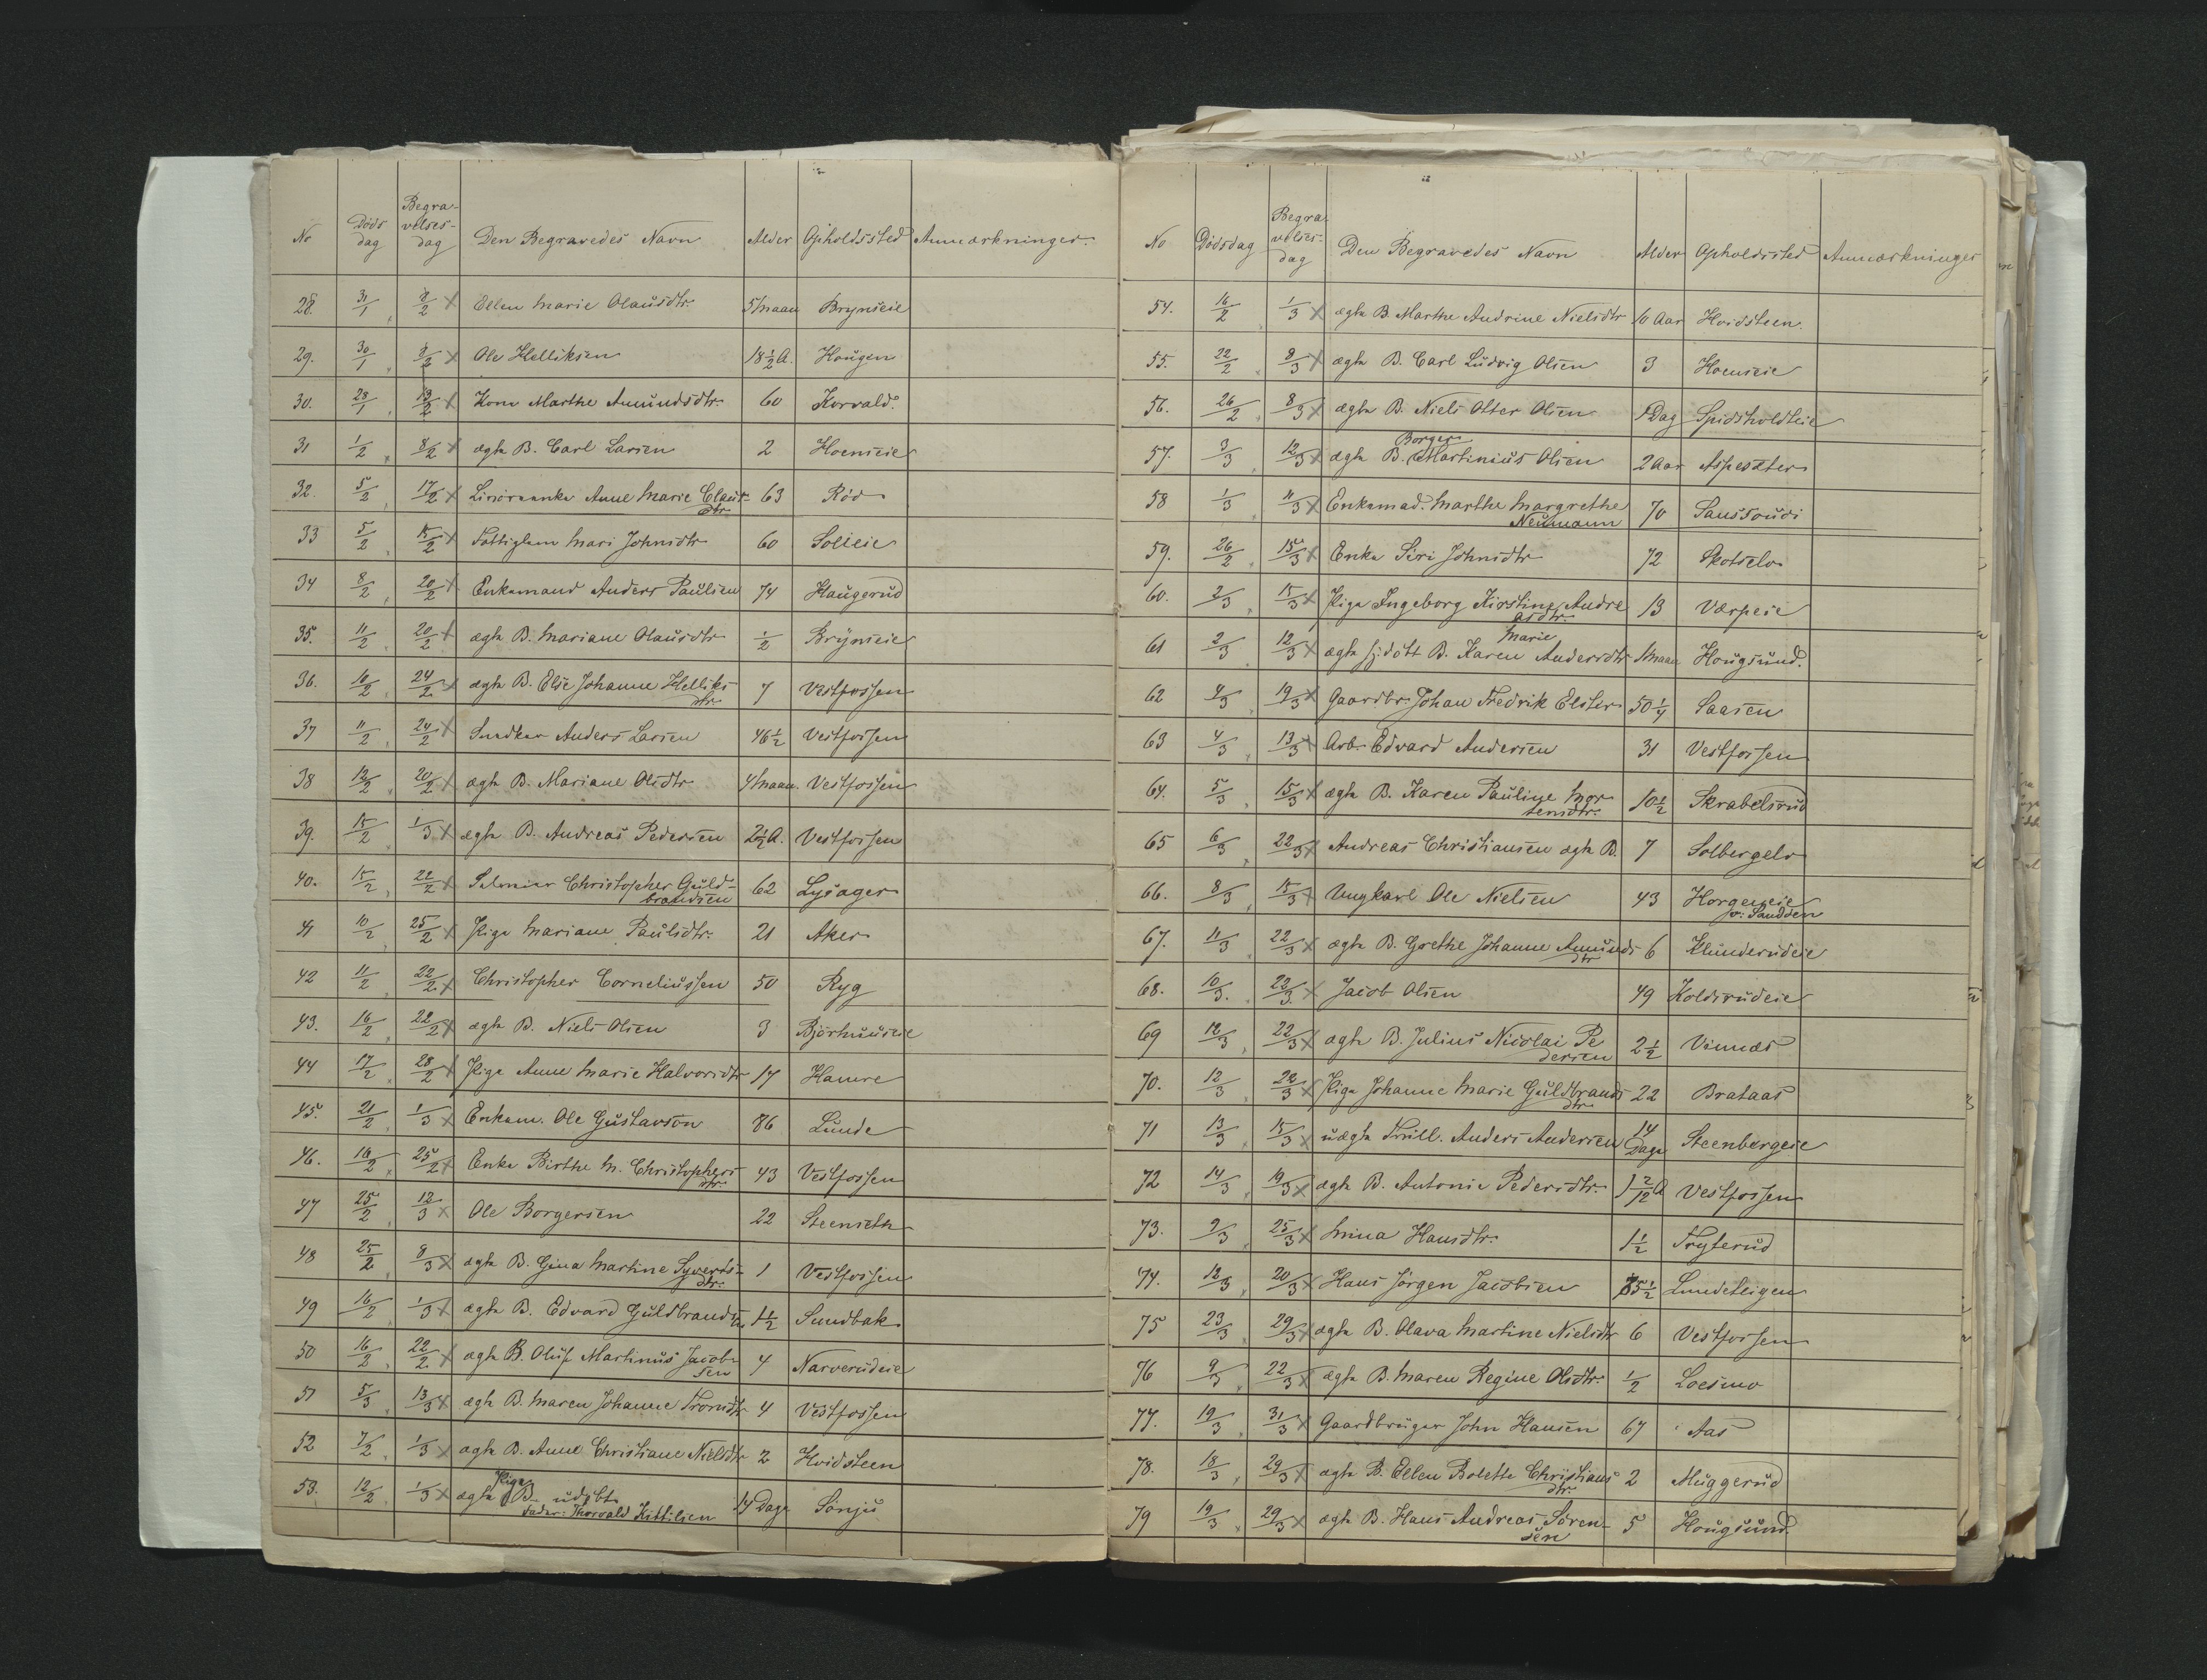 No Døds dag Begra- velses- dag Den Begravedes Navn Alder Opholdssted Anmærkninger.
28. 31/1 8/2 x Ellen Marie Olausdtr. 5 Maan Brynseie
29. 30/1 8/2 x Ole Helliksen 18 1/2 A. Hougen
30. 28/1 13/2 x Kone Marthe Amundsdtr. 60 Korvald.
31 1/2 8/2 x ægte B. Carl Larsen 2 Hoenseie
32. 5/2 17/2 x Anne Marie Claus- 63 Röd
dtr.
33 5/2 15/2 x Fattiglem Mari Johnsdtr 60 Solleie
34 8/2 20/2 x Enkemand Anders Paulsen 74 Haugerud
35. 11/2 20/2 x ægte B. Mariane Olausdtr 1/2 Brynseie
36. 16/2 24/2 x ægte B. Else Johanne Helliks 7 Vestfossen
dtr.
37 11/2 24/2 x Snedker Anders Larsen 46 1/2 Vestfossen
38 12/2 20/2 x ægte B. Mariane Olsdtr 4 Maan. Vestfossen
39. 15/2 1/3 x ægte B. Andreas Pedersen 2 1/2 A. Vestfossen
40. 15/2 22/2 x Christopher Guld- 62 Lysager
brandsen
41 10/2 25/2 x Pige Mariane Paulsdtr. 21 Aker
42 11/2 22/2 x Christopher Corneliussen 50 Ryg
43. 16/2 22/2 x ægte B. Niels Olsen 3 Björhuuseie
44 17/2 28/2 x Pige Anne Marie Halvorsdtr 17 Hamre
45. 21/2 1/3 x Enkem. Ole Gustavson 86 Lunde
46. 16/2 25/2 x Enke Birthe M. Christophers 43 Vestfossen
dtr.
47 25/2 12/3 x Ole Borgersen 22 Steenseth
48 25/2 8/3 x ægte B. Gina Martine Syverts- 1 Vestfossen
dtr.
49 16/2 1/3 x ægte B. Edvard Guldbrandsen 1 1/2 Sundbak
50 16/2 22/2 x ægte B. Oluf Martinus Jacob- 4 Narverudeie
sen
51 5/3 13/3 x ægte B. Maren Johanne Tronsdtr 4 Vestfossen
52 7/2 1/3 x ægte B. Anne Christiane Nielsdtr 2 Hvidsteen
Pige
53. 12/2 1/3 x ægte B. udøbt 14 Dage Sönju
Fader: Thorvald Kittilsen
No Dödsdag Begra- velses- dag Den Begravedes Navn Alder Opholdssted Anmærkninger
54. 16/2 1/3 x ægte B. Marthe Andrine Nielsdtr 10 Aar Hvidsteen.
55. 22/2 8/3 x ægte B. Carl Ludvig Olsen 3 Hoenseie
56. 26/2 8/3 x ægte B. Niels Olter Olsen 1 Dag Spidsholdteie
Borger
57. 3/3 12/3 x ægte B. Martinius Olsen 2 Aar Aspesæter
58 1/3 11/3 x Enkemad. Marthe Margrethe 70 Sanssouci
Neumann
59. 26/2 15/3 x Enke Siri Johnsdtr 72 Skotselv
60. 2/3 15/3 x Pige Ingeborg Kirstine Andre 13 Værpeie
asdtr.
Marie
61 2/3 12/3 x ægte hjdöbt B. Karen Andersdtr 1 Maan Hougsund.
62 4/3 19/3 x Gaardbr. Johan Fredrik Elster 50 1/4 Saasen
63 4/3 13/3 x Arb. Edvard Andersen 31 Vestfossen
64. 5/3 15/3 x ægte B. Karen Pauline Mor 10 1/2 Skrabelsrud
tensdtr.
65 6/3 22/3 x Andreas Christiansen ægte B. 7 Solbergelv
66. 8/3 15/3 x Ungkarl Ole Nielsen 43 Horgeneie
Sandden
67. 11/3 22/3 x ægte B. Grethe Johanne Amunds 6 Klunderudeie
dtr
68. 10/3. 22/3. x Jacob Olsen 49 Koldsrudeie
69 12/3 22/3 x ægte B. Julius Nicolai Pe 2 1/2 Vinnæs
dersen
70. 12/3 22/3 x Pige Johanne Marie Guldbrands 22 Brataas
dtr
71 13/3 15/3 x uægte Tvill. Anders Andersen 14 Dage Steenbergeie
72 14/3 19/3 x ægte B. Antonie Pedersdtr. 1 2/12 A Vestfossen
73. 9/3 25/3 x Mina Hansdtr. 1 1/2 Fryserud
74. 12/3 20/3 x Hans Jörgen Jacobsen 75 1/2 Lundeteigen
75 23/3 29/3 x ægte B. Olava Martine Nielsdtr 6 Vestfossen
76 9/3 22/3 x ægte B. Maren Regine Olsdtr. 1/2 Loesmo
77. 19/3 31/3 x Gaardbruger John Hansen 67 Aas
78. 18/3 29/3 x ægte B. Ellen Bolette Christians 2 Muggerud
dtr.
79 19/3 29/3 x ægte B. Hans Andreas Sören- 5 Hougsund
sen